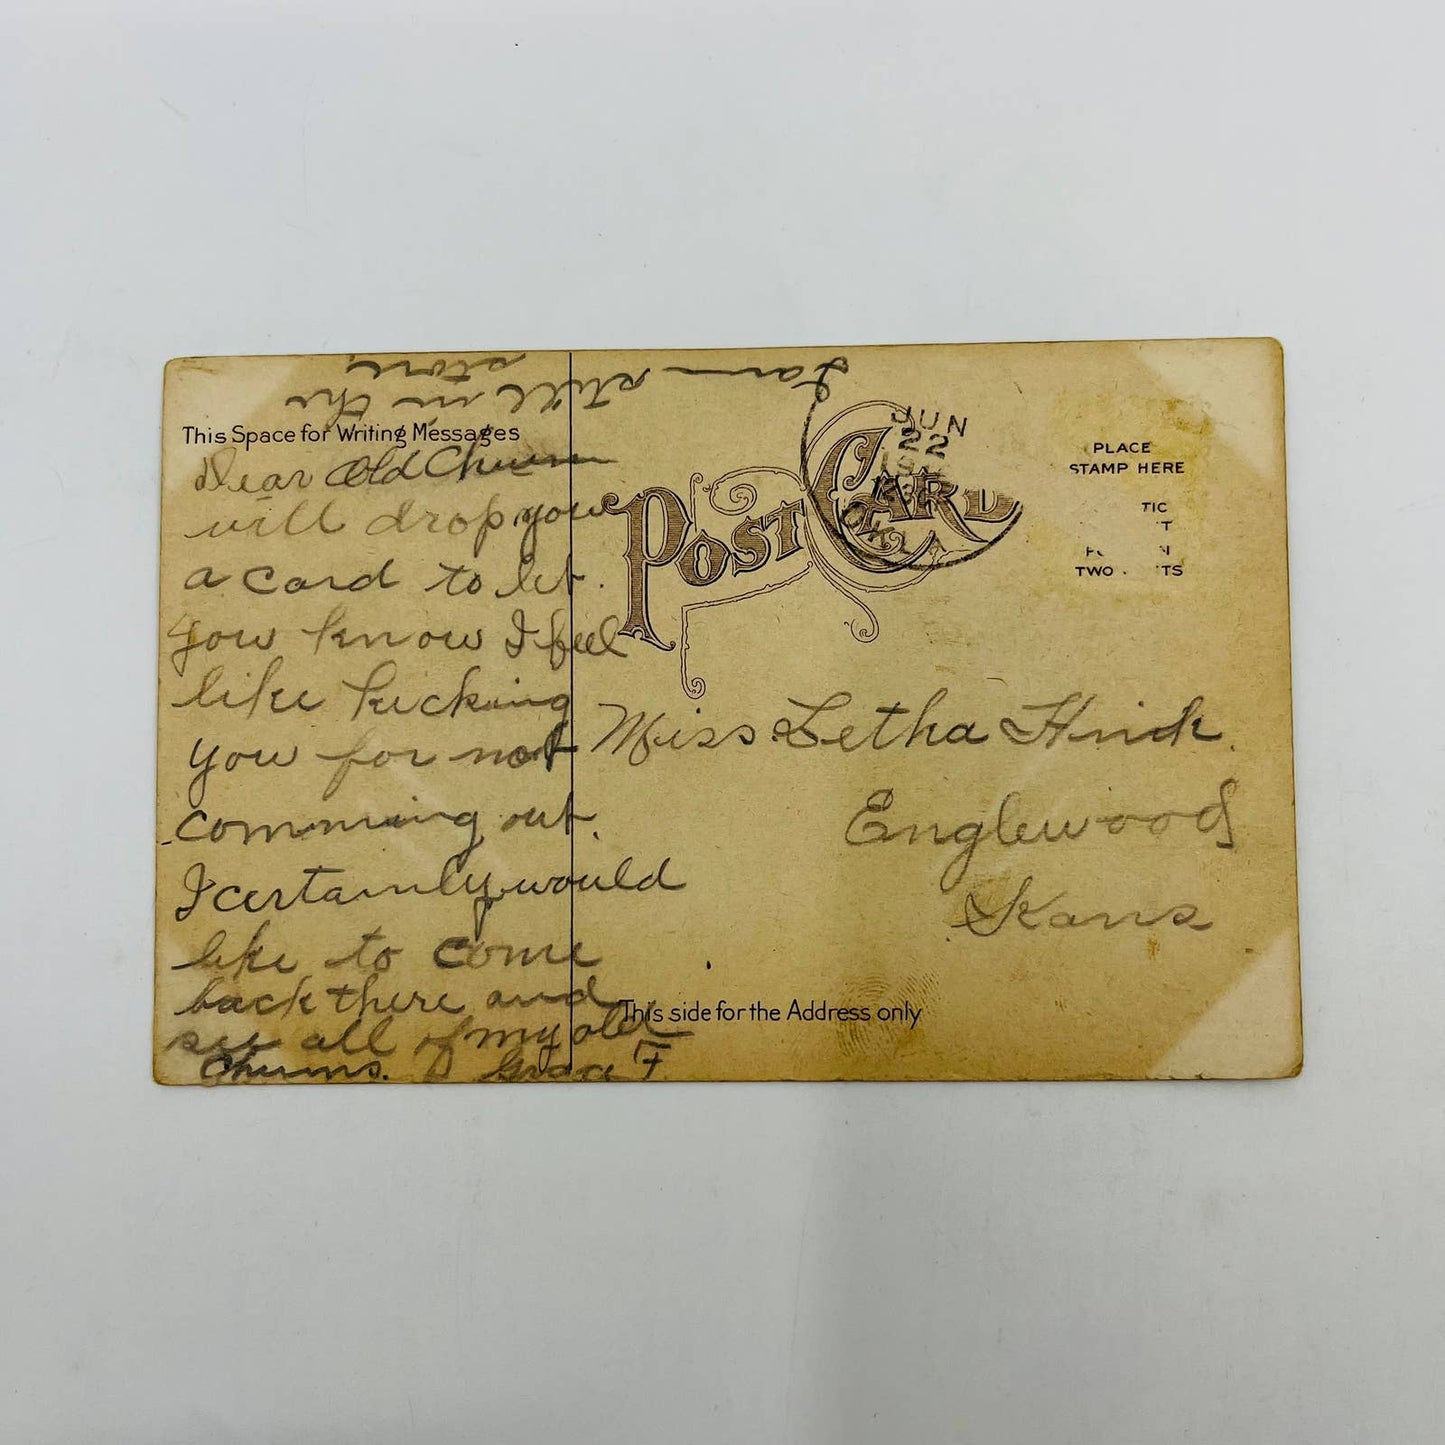 I am still in the
store.
This Space for Writing Messages
Dear Old Chum
will drop you
a card to let
you know I feel
like kicking
you for not
comming out.
I certainly would
like to come
back there and
see all of my old
Chums. Grace F.
POST CARD
JUN
22
OKLA
PLACE
STAMP HERE
TIC
T
N
TWO TS
Miss Letha
Englewood
Kans
This side for the Address only